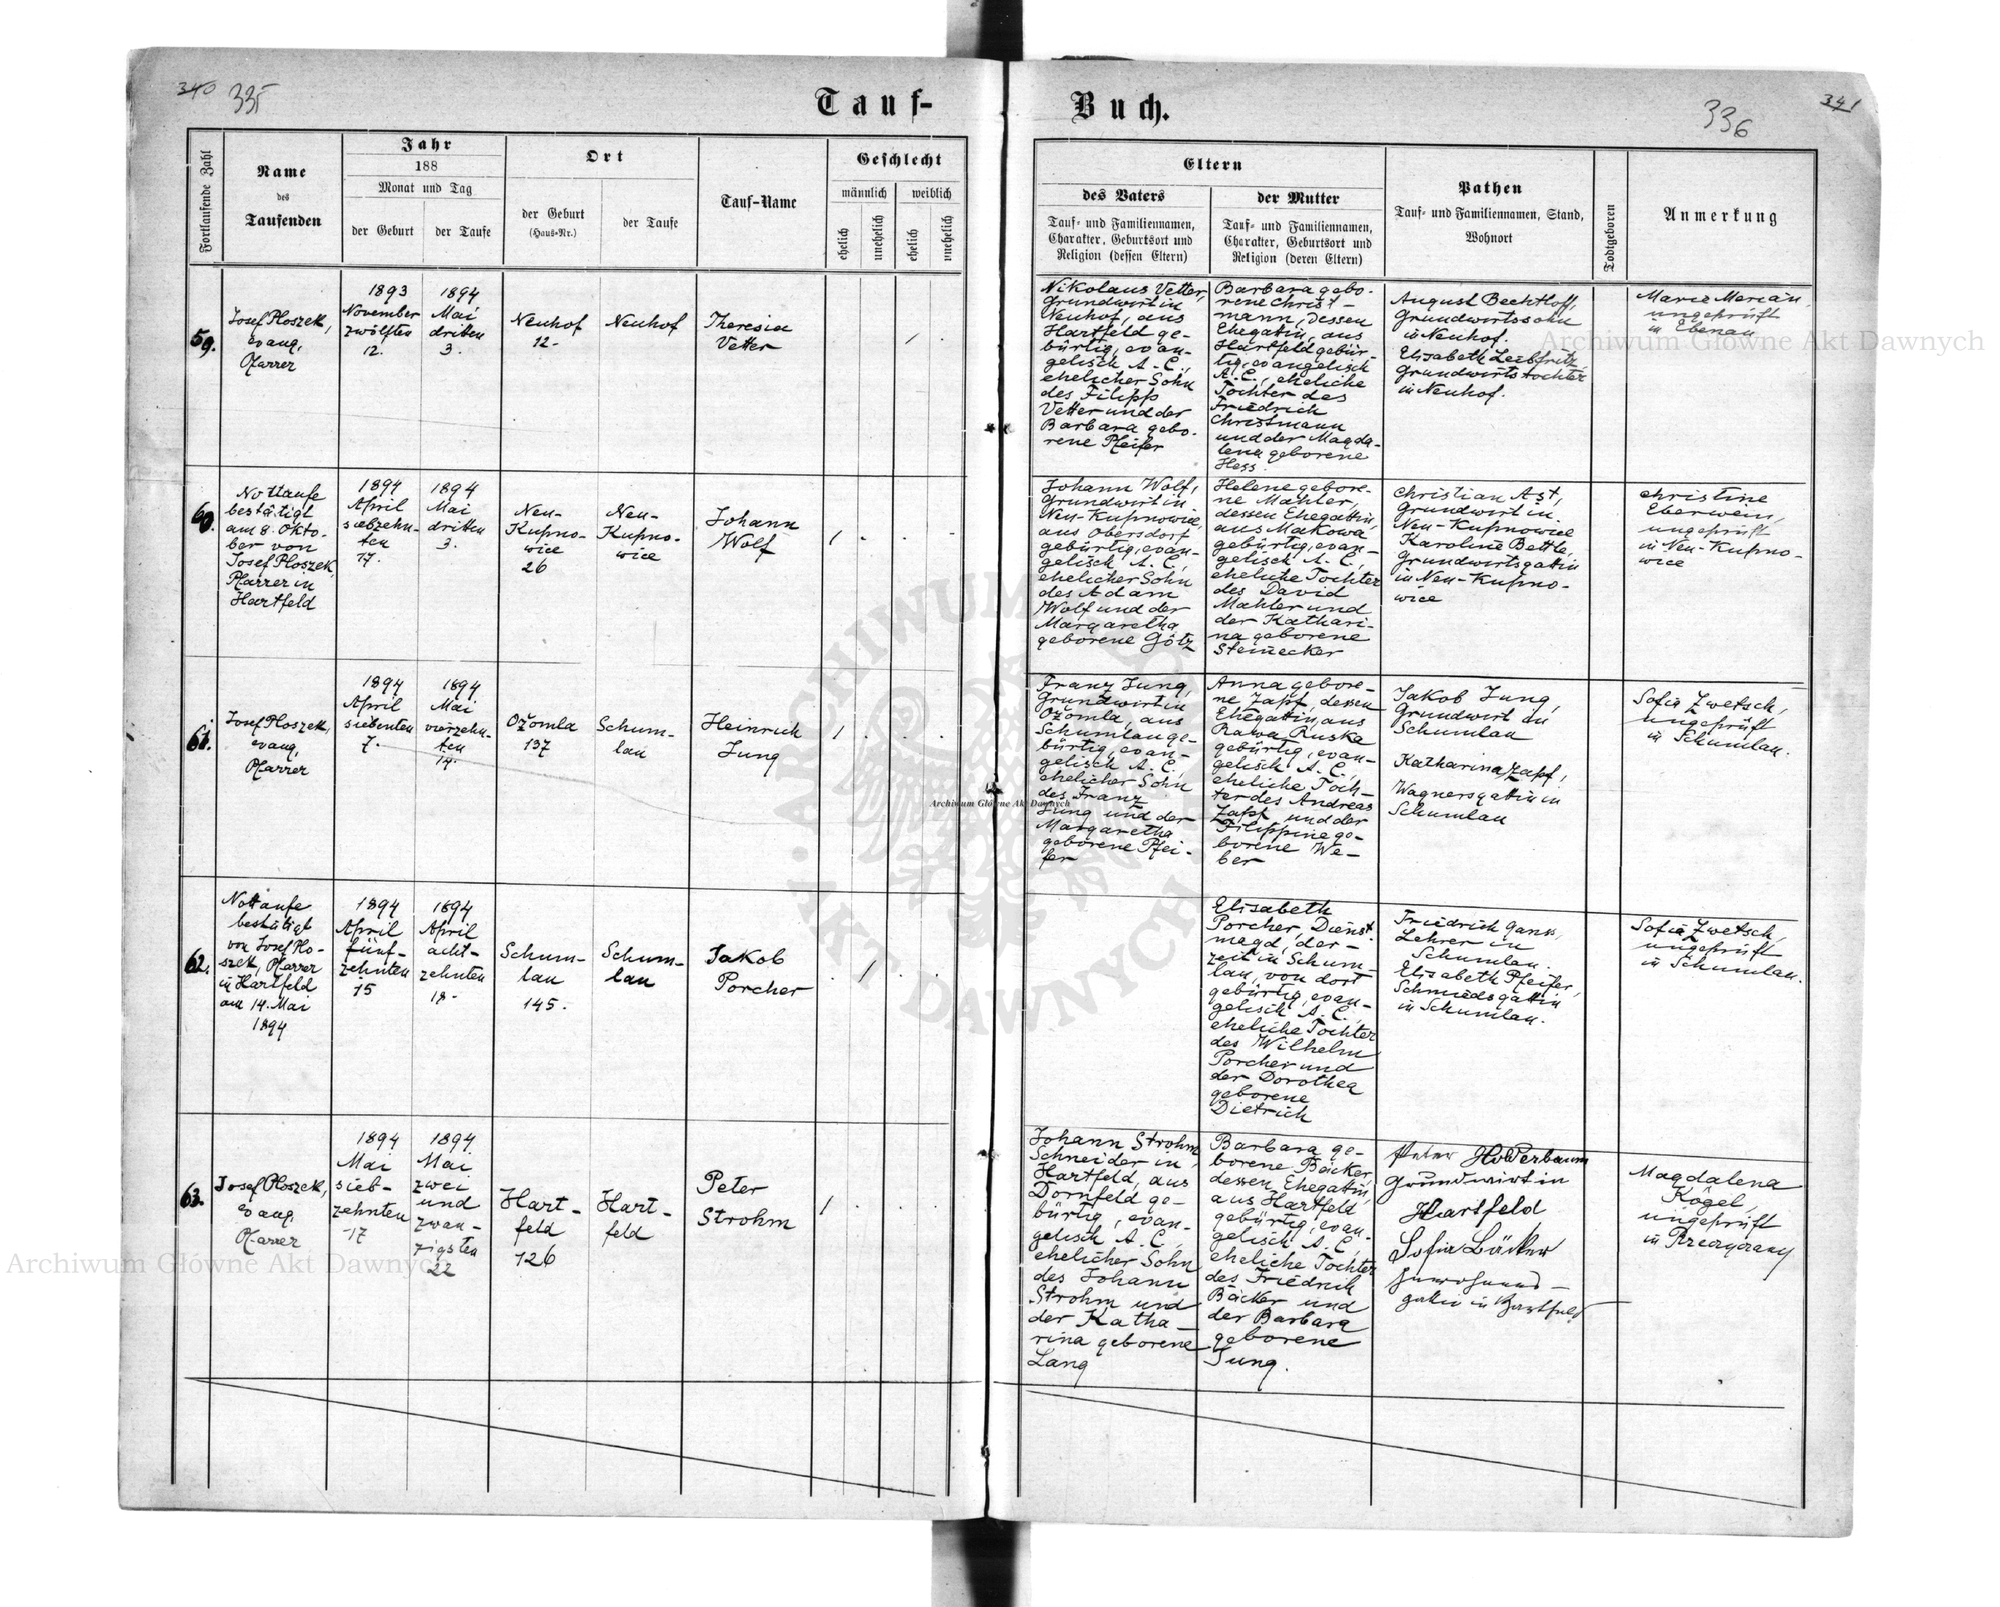 340 335
Tauf-
Buch.
336
341
Fortlaufende Zahl
Name
des
Taufenden
Jahr
188
Monat und Tag
der Geburt
der Taufe
Ort
der Geburt
(Haus-Nr.)
der Taufe
Tauf-Name
Geschlecht
männlich
weiblich
ehelich
unehelich
ehelich
unehelich
Eltern
des Vaters
Tauf- und Familiennamen,
Charakter, Geburtsort und
Religion (dessen Eltern)
der Mutter
Tauf- und Familiennamen,
Charakter, Geburtsort und
Religion (deren Eltern)
Pathen
Tauf- und Familiennamen, Stand,
Wohnort
Todtgeboren
Anmerkung
59.
Josef Ploszek,
evang.
Pfarrer
1893
November
zwölften
12.
1894
Mai
dritten
3.
Neuhof
12.
Neuhof
Theresia
Vetter
Nikolaus Vetter,
Grundwirt in
Neuhof, aus
Hartfeld ge-
bürtig, evan-
gelisch A. C.,
ehelicher Sohn
des Filipp
Vetter und der
Barbara gebo-
rene Pfeifer
Barbara gebo-
rene Christ-
mann, dessen
Ehegattin, aus
Hartfeld gebür-
tig, evangelisch
A. C., eheliche
Tochter des
Friedrich
Christmann
und der Magda-
lena geborene
Hess.
August Bechtloff,
Grundwirtssohn
in Neuhof.
Elisabeth Leibfritz
Grundwirtstochter
in Neuhof.
Marie Merian,
ungeprüft
in Ebenau
60.
Nottaufe
bestätigt
am 8. Okto-
ber von
Josef Ploszek,
Pfarrer in
Hartfeld
1894
April
siebzehn-
ten
17.
1894
Mai
dritten
3.
Neu-
Kupno-
wice
26
Neu-
Kupno-
wice
Johann
Wolf
1
Johann Wolf,
Grundwirt in
Neu-Kupnowice,
aus Obersdorf
gebürtig, evan-
gelisch A. C.,
ehelicher Sohn
des Adam
Wolf und der
Margaretha
geborene Götz
Helene gebore-
ne Mahler,
dessen Ehegattin,
aus Makowa
gebürtig, evan-
gelisch A. C.,
eheliche Tochter
des David
Mahler und
der Kathari-
na geborene
Steinecker
Christian Ast,
Grundwirt in
Neu-Kupnowice
Karoline Bettle,
Grundwirtsgattin
in Neu-Kupno-
wice
Christine
Eberwein,
ungeprüft
in Neu-Kupno-
wice
61.
Josef Ploszek,
evang.
Pfarrer
1894
April
siebenten
7.
1894
Mai
vierzehn-
ten
14.
Ożomla
137
Schum-
lau
Heinrich
Jung
1
Franz Jung,
Grundwirt in
Ożomla, aus
Schumlau ge-
bürtig, evan-
gelisch A. C.,
ehelicher Sohn
des Franz
Jung und der
Margaretha
geborene Pfei-
fer
Anna gebore-
ne Zapf, dessen
Ehegattin, aus
Rawa Ruska
gebürtig, evan-
gelisch A. C.,
eheliche Toch-
ter des Andreas
Zapf und der
Filippine ge-
borene We-
ber
Jakob Jung,
Grundwirt in
Schumlau
Katharina Zapf,
Wagnersgattin in
Schumlau
Sofie Zwetsch,
ungeprüft
in Schumlau.
62.
Nottaufe
bestätigt
von Josef Plo-
szek, Pfarrer
in Hartfeld
am 14. Mai
1894
1894
April
fünf-
zehnten
15
1894
April
acht-
zehnten
18.
Schum-
lau
145.
Schum-
lau
Jakob
Porcher
1
Elisabeth
Porcher, Dienst-
magd, der-
zeit in Schum-
lau, von dort
gebürtig, evan-
gelisch A. C.,
eheliche Tochter
des Wilhelm
Porcher und
der Dorothea
geborene
Dietrich
Friedrich Gans,
Lehrer in
Schumlau.
Elisabeth Pfeifer,
Schmiedsgattin
in Schumlau.
Sofie Zwetsch,
ungeprüft
in Schumlau.
63.
Josef Ploszek,
evang.
Pfarrer
1894
Mai
sieb-
zehnten
17
1894
Mai
zwei
und
zwan-
zigsten
22
Hart-
feld
126
Hart-
feld
Peter
Strohm
1
Johann Strohm
Schneider in
Hartfeld, aus
Dornfeld ge-
bürtig, evan-
gelisch A. C.,
ehelicher Sohn
des Johann
Strohm und
der Katha-
rina geborene
Lang
Barbara ge-
borene Bäcker,
dessen Ehegattin,
aus Hartfeld
gebürtig, evan-
gelisch A. C.,
eheliche Tochter
des Friedrich
Bäcker und
der Barbara
geborene
Jung.
Peter Holderbaum
Grundwirt in
Hartfeld
Sofia Bäcker
gattin in Hartfeld
Magdalena
Kögel,
ungeprüft
in
Archiwum Główne Akt Dawnych
Archiwum Główne Akt Dawnych
Archiwum Główne Akt Dawnych
ARCHIWUM
AKT DAWNYCH